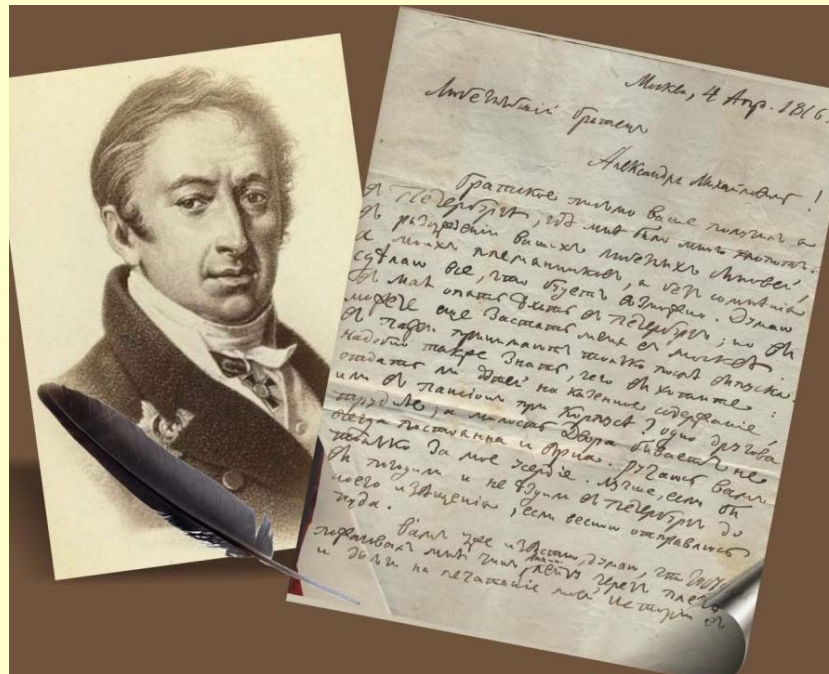 Москва, 4 Апр. 1816.
Любезнѣйшій братецъ
Александръ Михайловичъ!
Братское письмо ваше получилъ я
въ Петербургѣ, гдѣ мнѣ было много хлопотъ.
о моихъ племянниковъ, а безъ сомнѣнія
сдѣлаю все, что будетъ возможно. Думаю
въ Маѣ опять ѣхать въ Петербургъ; но вы
можете еще застать меня въ Москвѣ.
въ пажи принимаютъ только послѣ выпуска.
Надобно также знать, чего вы хотите:
отдать ли дѣтей на казенное содержаніе,
или въ пансіонъ при Корпусѣ? одно другова
труднѣе; а милость Двора бываетъ не
всегда постоянна и вѣрна. Ручаюсь вамъ
только за мое усердіе. Лучше, если бы
вы погодили и не ѣздили въ Петербургъ до
моего извѣщенія, если весною отправлюсь
туда.
Вамъ уже извѣстно, думаю, что
мнѣ чинъ, Анны черезъ плечо
и на печатаніе моей Исторіи